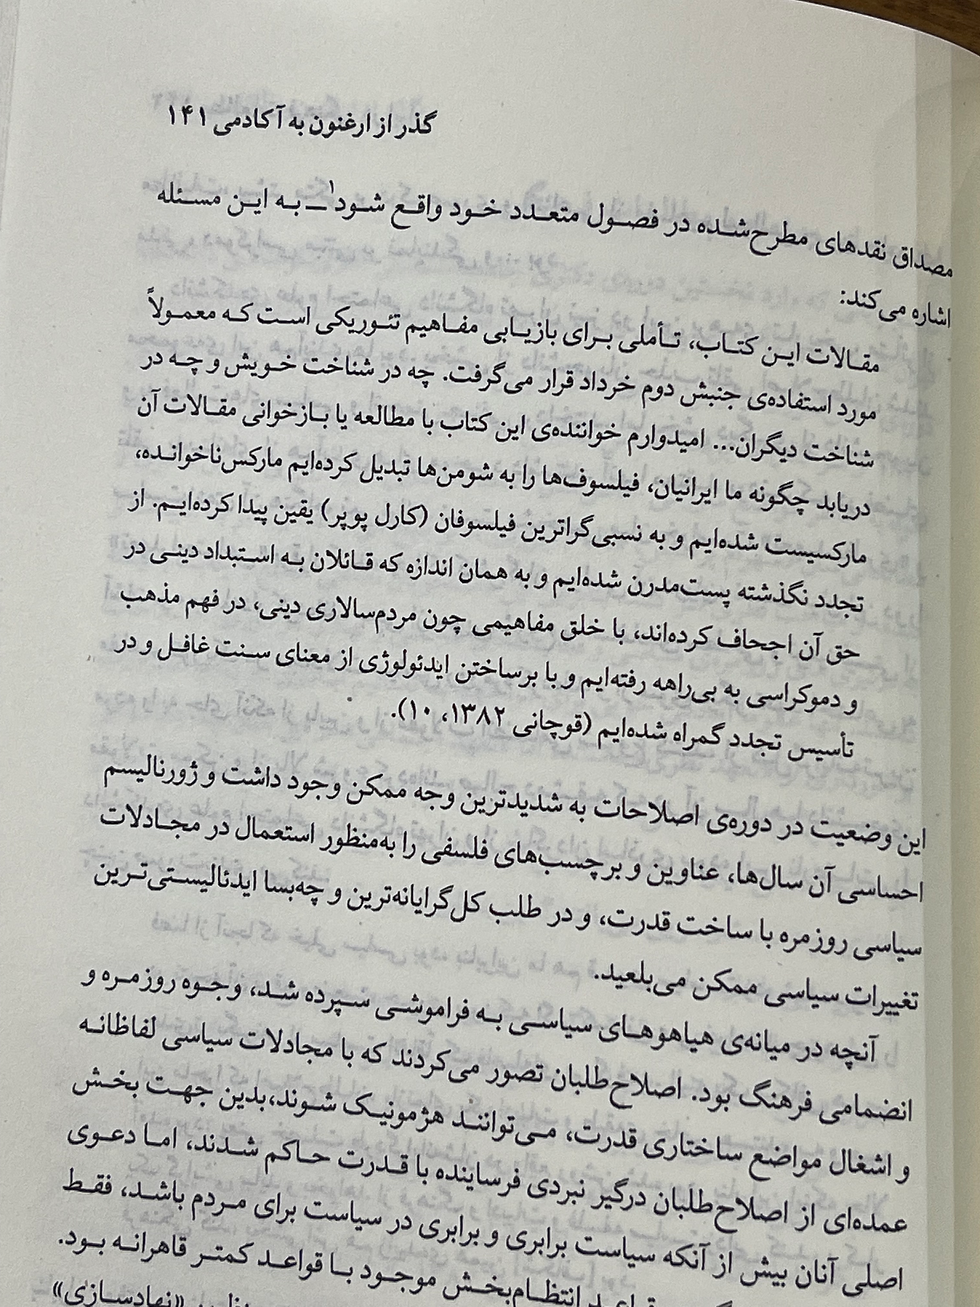 گذر از ارغنون به آکادمی ۱۴۱
مصداق نقدهای مطرح‌شده در فصول متعدد خود واقع شود۱ـ به این مسئله
اشاره می‌کند:
مقالات این کتاب، تأملی برای بازیابی مفاهیم تئوریکی است که معمولاً
مورد استفاده‌ی جنبش دوم خرداد قرار می‌گرفت. چه در شناخت خویش و چه در
شناخت دیگران... امیدوارم خواننده‌ی این کتاب با مطالعه یا بازخوانی مقالات آن
دریابد چگونه ما ایرانیان، فیلسوف‌ها را به شومن‌ها تبدیل کرده‌ایم مارکس‌ناخوانده،
مارکسیست شده‌ایم و به نسبی‌گراترین فیلسوفان (کارل پوپر) یقین پیدا کرده‌ایم. از
تجدد نگذشته پست‌مدرن شده‌ایم و به همان اندازه که قائلان به استبداد دینی در
حق آن اجحاف کرده‌اند، با خلق مفاهیمی چون مردم‌سالاری دینی، در فهم مذهب
و دموکراسی به بی‌راهه رفته‌ایم و با برساختن ایدئولوژی از معنای سنت غافل و در
تأسیس تجدد گمراه شده‌ایم (قوچانی ۱۳۸۲، ۱۰).
این وضعیت در دوره‌ی اصلاحات به شدیدترین وجه ممکن وجود داشت و ژورنالیسم
احساسی آن سال‌ها، عناوین و برچسب‌های فلسفی را به‌منظور استعمال در مجادلات
سیاسی روزمره با ساخت قدرت، و در طلب کل‌گرایانه‌ترین و چه‌بسا ایدئالیستی‌ترین
تغییرات سیاسی ممکن می‌بلعید.
آنچه در میانه‌ی هیاهوهای سیاسی به فراموشی سپرده شد، وجوه روزمره و
انضمامی فرهنگ بود. اصلاح‌طلبان تصور می‌کردند که با مجادلات سیاسی لفاظانه
و اشغال مواضع ساختاری قدرت، می‌توانند هژمونیک شوند،بدین جهت بخش
عمده‌ای از اصلاح‌طلبان درگیر نبردی فرساینده با قدرت حاکم شدند، اما دعوی
اصلی آنان بیش از آنکه سیاست برابری و برابری در سیاست برای مردم باشد، فقط
قواعد انتظام‌بخش موجود با قواعد کمتر قاهرانه بود.
«نهادسازی»